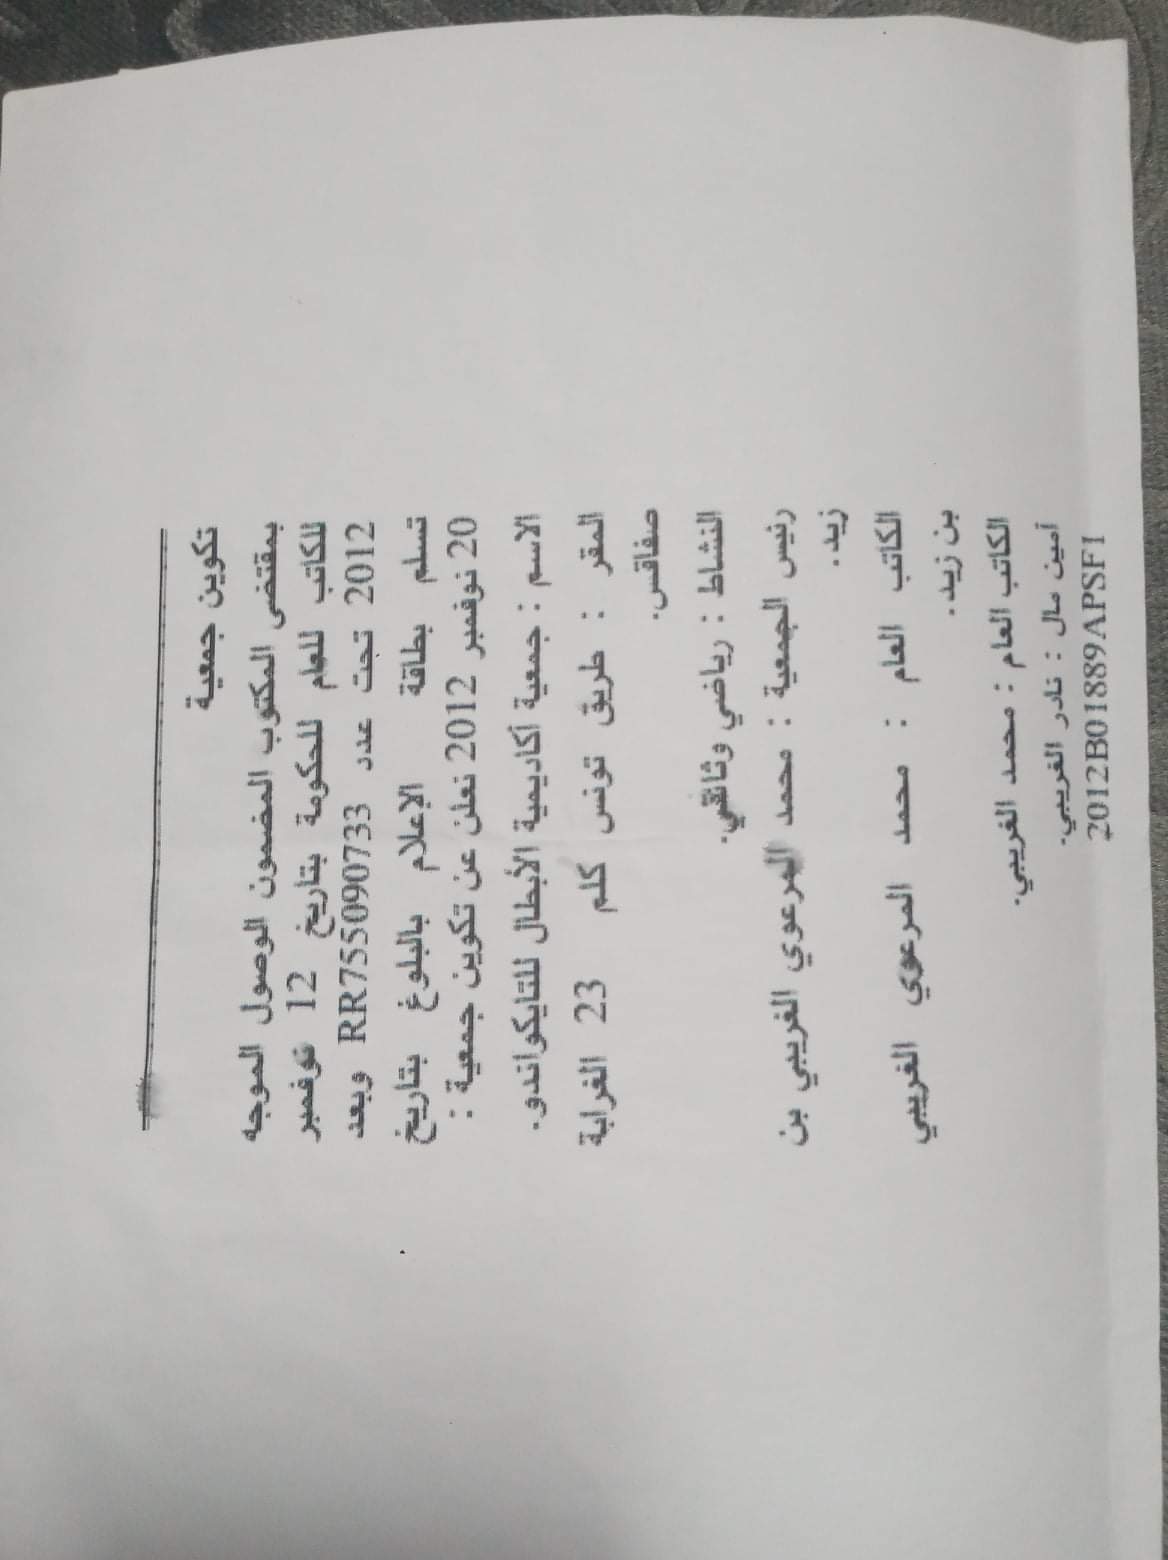 تكوين جمعية
بمقتضى المكتوب المضمون الوصول الموجه
للكاتب للعام للحكومة بتاريخ 12 نوفمبر
2012 تحت عدد RR755090733 وبعد
تسلم بطاقة الإعلام بالبلوغ بتاريخ
20 نوفمبر 2012 نعلن عن تكوين جمعية :
الاسم : جمعية أكاديمية الأبطال للتايكواندو.
المقر : طريق تونس كلم 23 الغرابة
صفاقس.
النشاط : رياضي وثائقي.
رئيس الجمعية : محمد المرعوي الغريبي بن
زيد.
الكاتب العام : محمد المرعوي الغريبي
بن زيد.
الكاتب العام : محمد الغريبي.
أمين مال : نادر الغريبي.
2012B01889APSF1